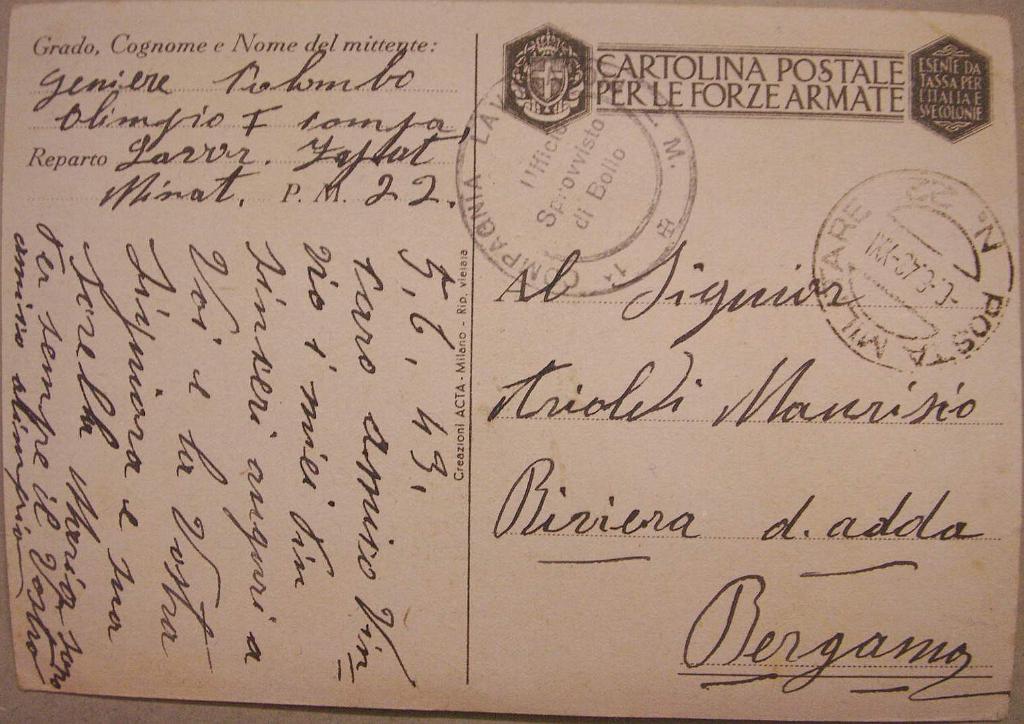 Grado, Cognome e Nome del mittente:
Geniere Colombo
Olimpio I compa,
Reparto Lavor.
Minat. P. M. 22.
CARTOLINA POSTALE
PER LE FORZE ARMATE
ESENTE DA
TASSA PER
L'ITALIA E
SVE COLONIE
COMPAGNIA
P. M.
Ufficio
Sprovvisto
di Bollo
POSTA MILITARE N. 22
Al Signior
Arioldi Maurisio
Riviera d. adda
Bergamo
Creazioni ACTA - Milano - Rip. vietata
5, 6, 43,
Caro amico Vin
sinceri auguri a
Voi e la Vostra
Signiora e sua
Sorella Maria sono
Per sempre il Vostro
amico olimpio